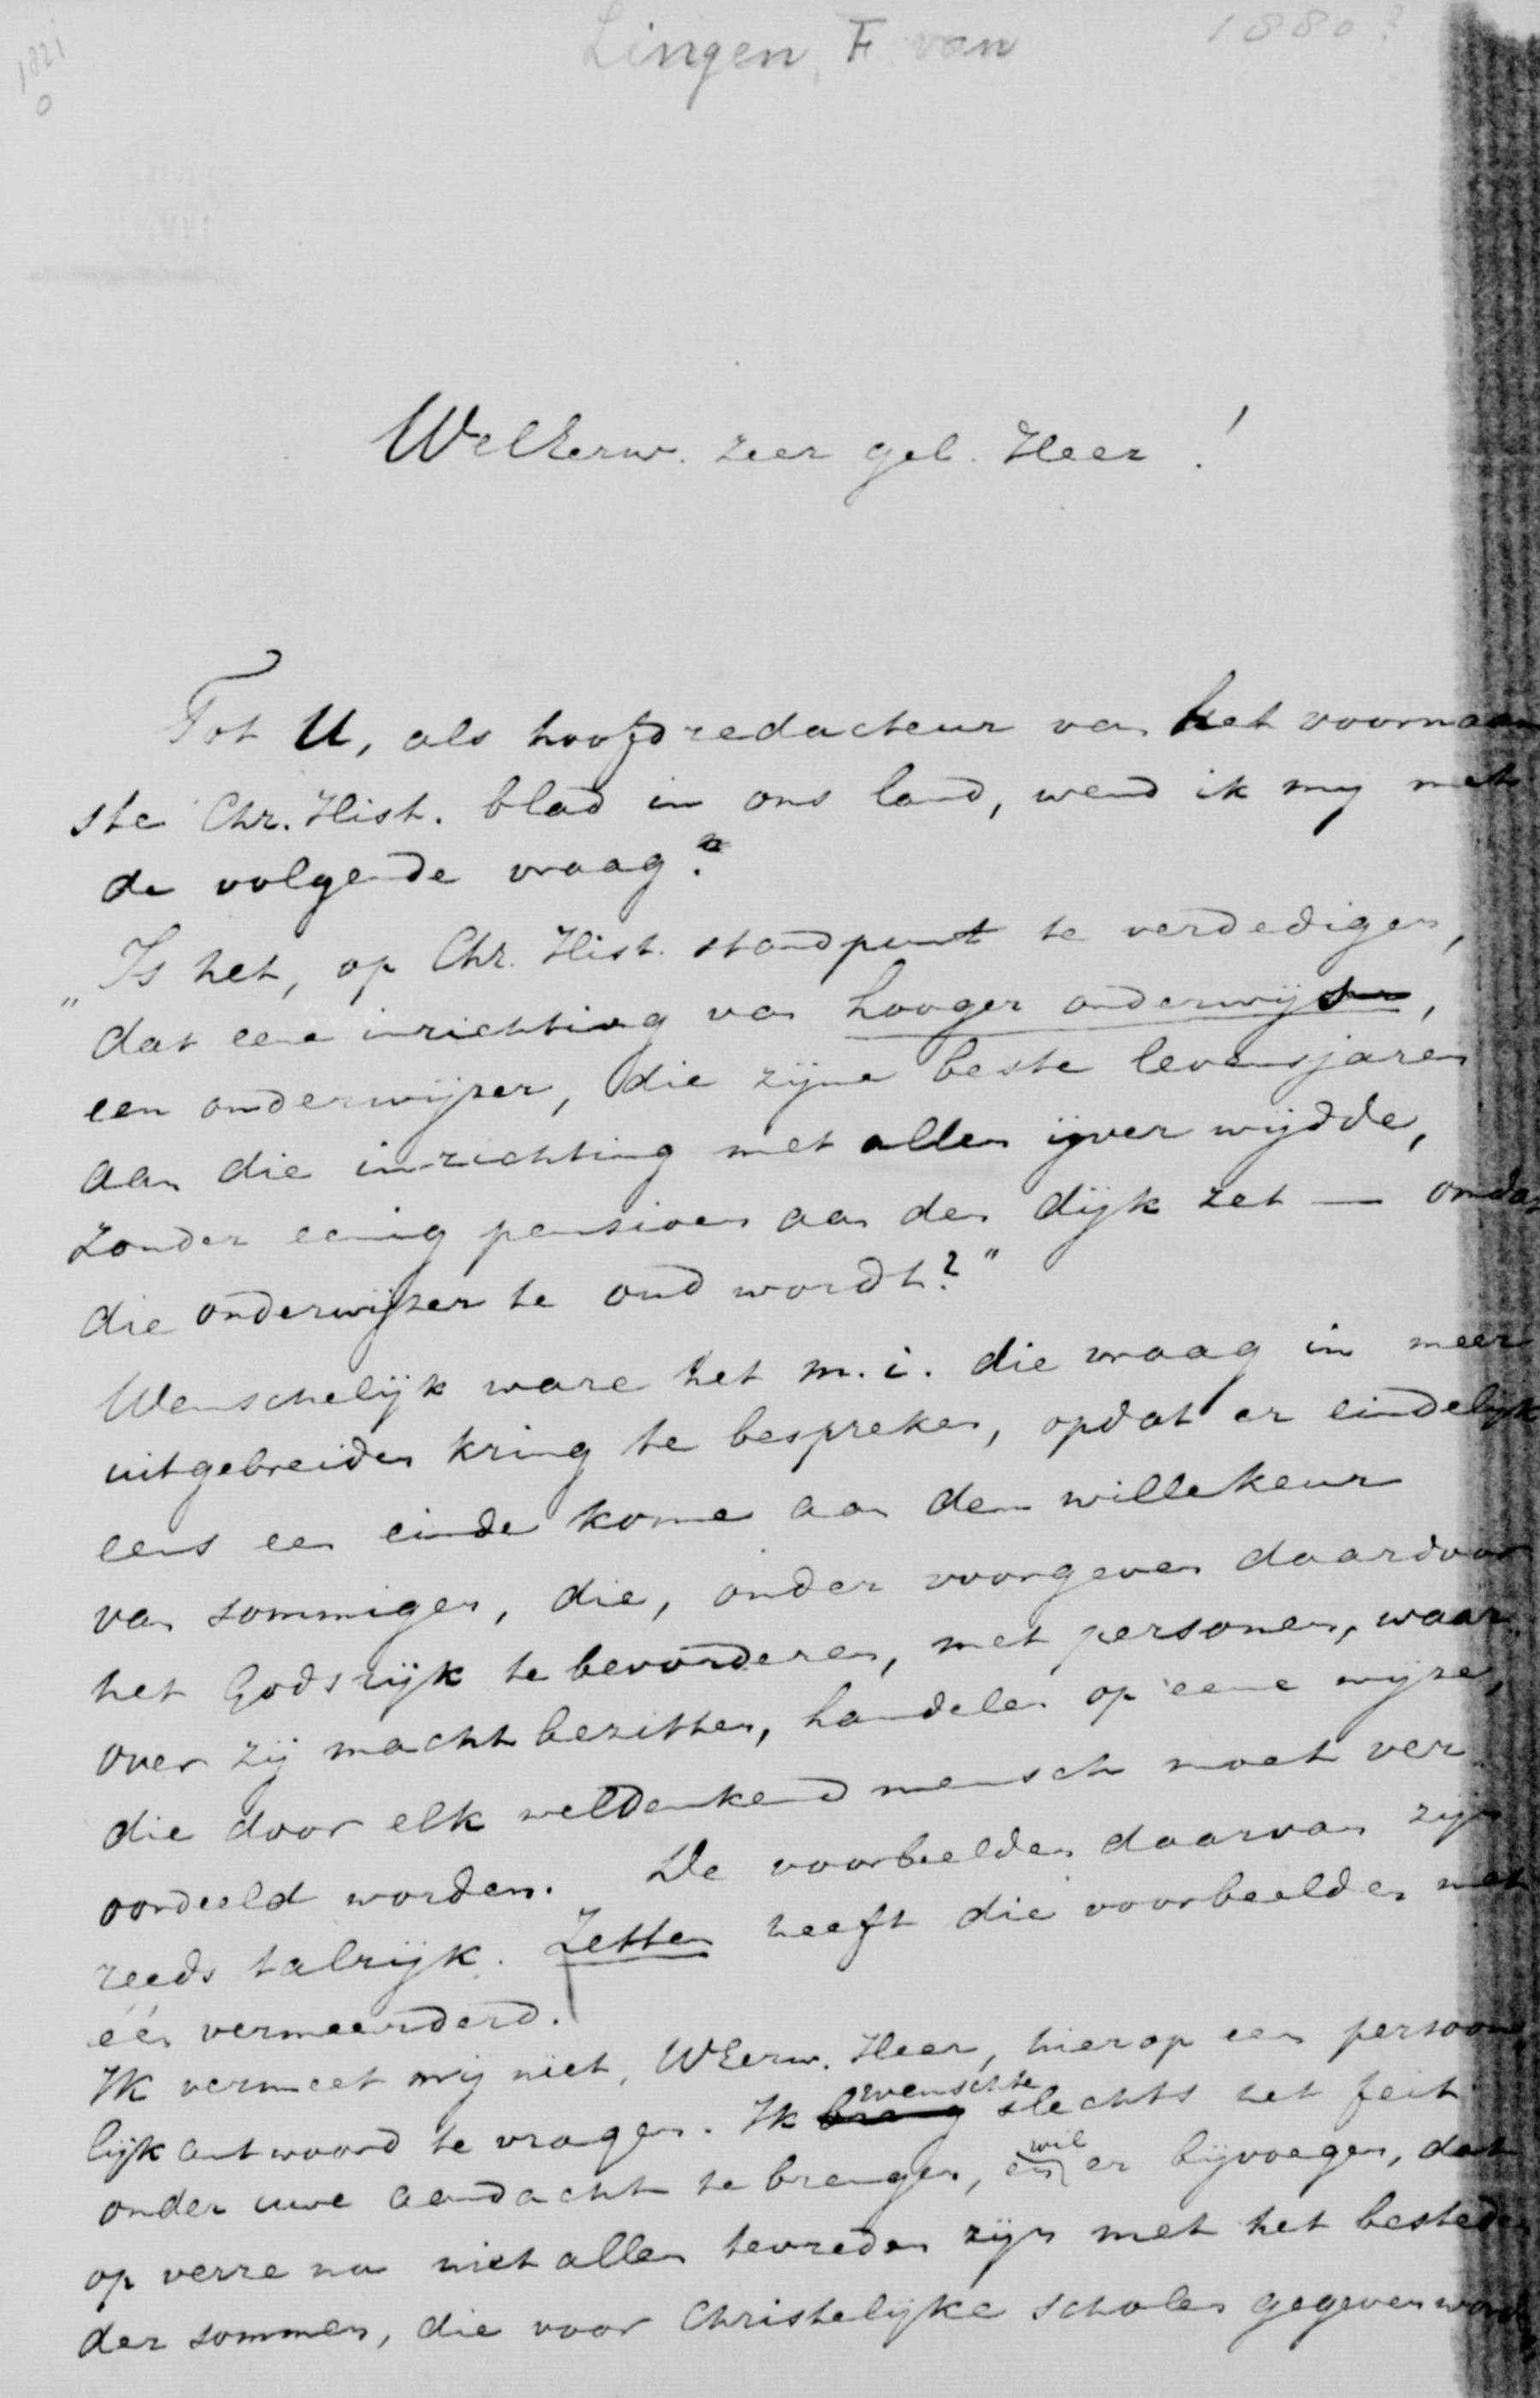 Lingen, F. van 1880?
1821
0
WelEerw. zeer gel. Heer!
Tot U, als hoofdredacteur van het voornaam
ste Chr. Hist. blad in ons land, wend ik mij met
de volgende vraag:
"Is het, op Chr. Hist. standpunt te verdedigen,
dat eene inrichting van hooger onderwijs,
een onderwijzer, die zijne beste levensjaren
aan die inrichting met allen ijver wijdde,
zonder eenig pensioen aan den dijk zet — omdat
die onderwijzer te oud wordt?"
Wenschelijk ware het m.i. die vraag in meer
uitgebreiden kring te bespreken, opdat er eindelijk
eens een einde kome aan den willekeur
van sommigen, die, onder voorgeven daardoor
het Godsrijk te bevorderen, met personen, waar
over zij macht bezitten, handelen op eene wijze,
die door elk weldenkend mensch moet ver
oordeeld worden. De voorbeelden daarvan zijn
reeds talrijk. Zetten heeft die voorbeelden met
één vermeerderd.
Ik vermeet mij niet, WEerw. Heer, hierop een persoon
lijk antwoord te vragen. Ik breng wenschte slechts het feit
onder uwe aandacht te brengen, en wil er bijvoegen, dat
op verre na niet allen tevreden zijn met het besteden
der sommen, die voor Christelijke scholen gegeven word